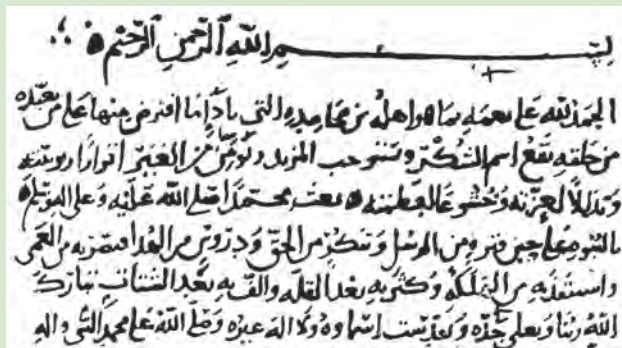 بسم الله الرحمن الرحيم
الحمد لله على نعمه بما هو اهله من محامده التي باداما افترض منها على من تعبده
من خلقه يقع اسم الشكر ويستوجب المزيد ويؤمن من الغير اقرارا بربوبيته
وتذللا لعزته وخشوعا لعظمته بعث محمدا صلى الله عليه وعلى اله وسلم
بالنبوة على حين فترة من الرسل وتنكر من الحق ودروس من الهدا فبصر به من العمى
واستنقذ به من الهلكة وكثر به بعد القلة والف به بعد الشتات تبارك
الله ربنا وتعلى جده وتقدست اسماوه ولا اله غيره وصلى الله على محمد النبي واله